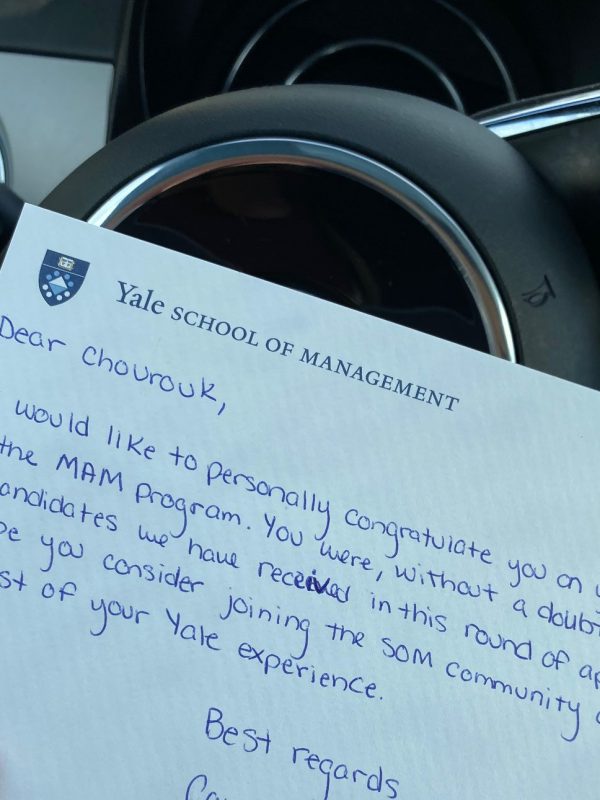 Yale SCHOOL OF MANAGEMENT
Dear Chourouk,
would like to personally congratulate you on
the MAM Program. You were, without a doubt
andidates we have received in this round of ap
pe you consider joining the SOM community
st of your Yale experience.
Best regards